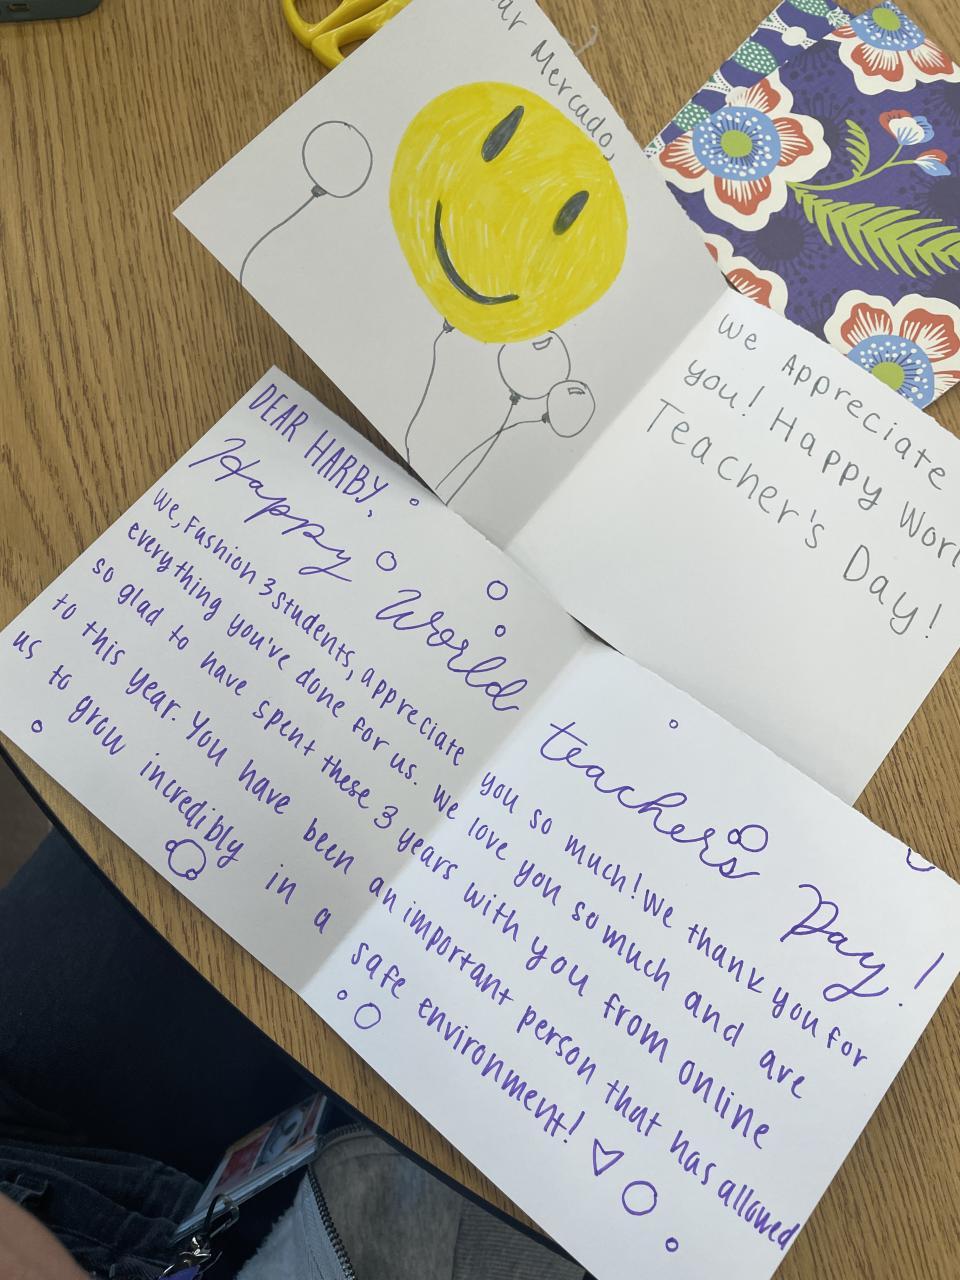 Mercado,
We Appreciate
you! Happy
Teacher's Day!
DEAR HARBY,
Happy World teachers Day!
We, Fashion 3 students, appreciate you so much! We thank you for
everything you've done for us. We love you so much and are
so glad to have spent these 3 years with you from online
to this year. You have been an important person that has allowed
us to grow incredibly in a safe environment! ♡